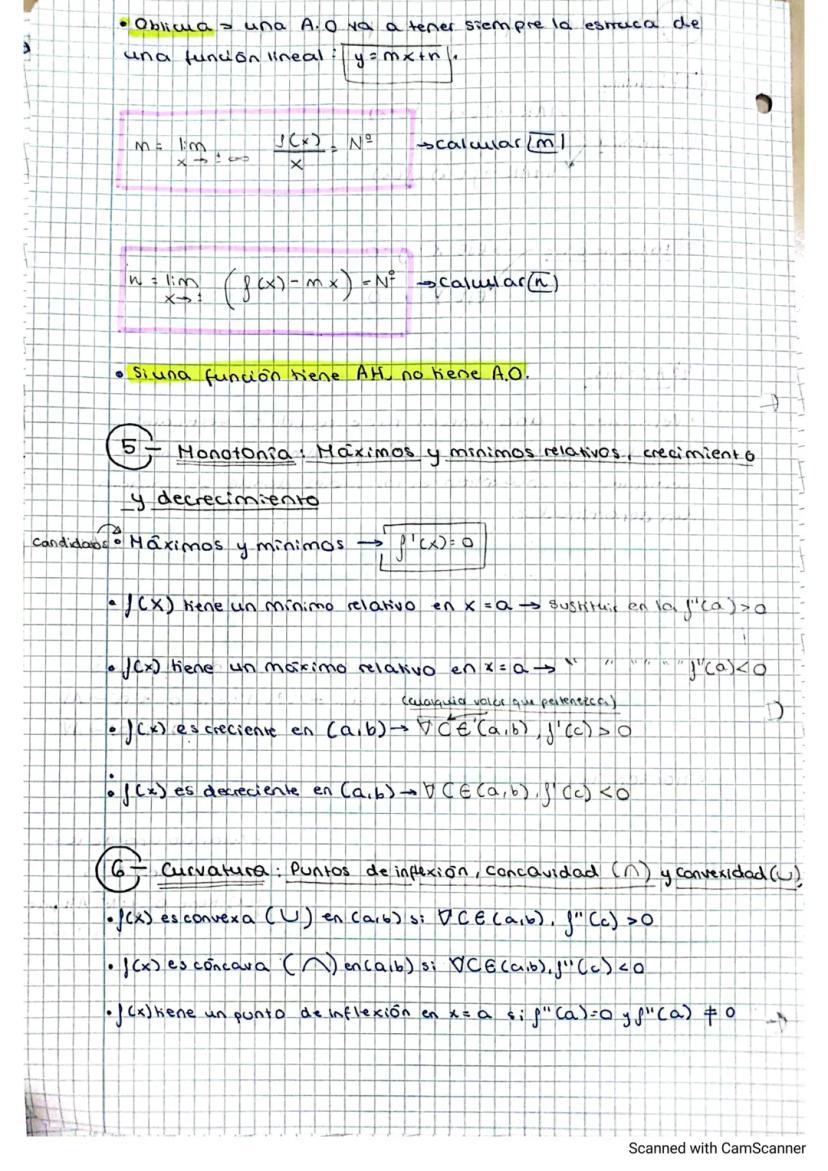 • Oblicua → una A.O va a tener siempre la estruca de
una función lineal: y = mx+n.
m = lim x→±∞ f(x)/x = Nº → calcular m
n = lim x→± (f(x) - mx) = Nº → calcular n
• Si una función tiene AH, no tiene A.O.
5- Monotonía: Máximos y mínimos relativos, crecimiento
y decrecimiento
candidatos • Máximos y mínimos → f'(x)=0
• f(x) tiene un mínimo relativo en x = a → sustituir en la f''(a)>0
• f(x) tiene un máximo relativo en x = a → " " " " " f''(a)<0
(cualquier valor que pertenezca)
• f(x) es creciente en (a,b) → ∀ C∈(a,b), f'(c)>0
• f(x) es decreciente en (a,b) → ∀ C∈(a,b), f'(c)<0
6- Curvatura: Puntos de inflexión, concavidad (∩) y convexidad (∪)
• f(x) es convexa (∪) en (a,b) si ∀ C∈(a,b), f''(c)>0
• f(x) es cóncava (∩) en (a,b) si ∀ C∈(a,b), f''(c)<0
• f(x) tiene un punto de inflexión en x = a si f''(a)=0 y f'''(a) ≠ 0
Scanned with CamScanner